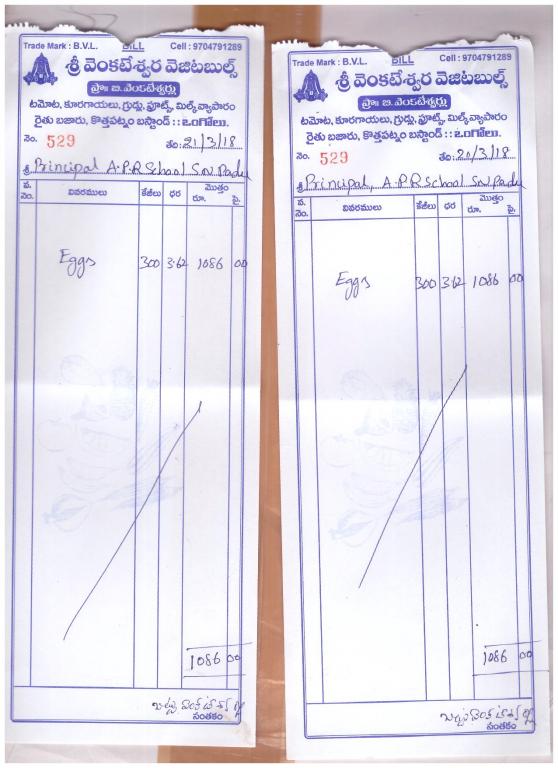 Trade Mark : B.V.L. BILL Cell : 9704791289
శ్రీ వెంకటేశ్వర వెజిటబుల్స్
ప్రొః బి.వెంకటేశ్వర్లు
టమోట, కూరగాయలు, గ్రుడ్లు, ఫ్రూట్స్, మిల్క్ వ్యాపారం
రైతు బజారు, కొత్తపట్నం బస్టాండ్ :: ఒంగోలు.
నెం. 529 తేది: 21/3/18
శ్రీ Principal A.P.R School S.N. Padu
వ. నెం. వివరములు కేజీలు ధర మొత్తం రూ. పై.
Eggs 300 3.62 1086 00
1086 00
సంతకం
Trade Mark : B.V.L. BILL Cell : 9704791289
శ్రీ వెంకటేశ్వర వెజిటబుల్స్
ప్రొః బి.వెంకటేశ్వర్లు
టమోట, కూరగాయలు, గ్రుడ్లు, ఫ్రూట్స్, మిల్క్ వ్యాపారం
రైతు బజారు, కొత్తపట్నం బస్టాండ్ :: ఒంగోలు.
నెం. 529 తేది: 20/3/18
శ్రీ Principal, A.P.R School S.N. Padu
వ. నెం. వివరములు కేజీలు ధర మొత్తం రూ. పై.
Eggs 300 3.62 1086 00
1086 00
సంతకం